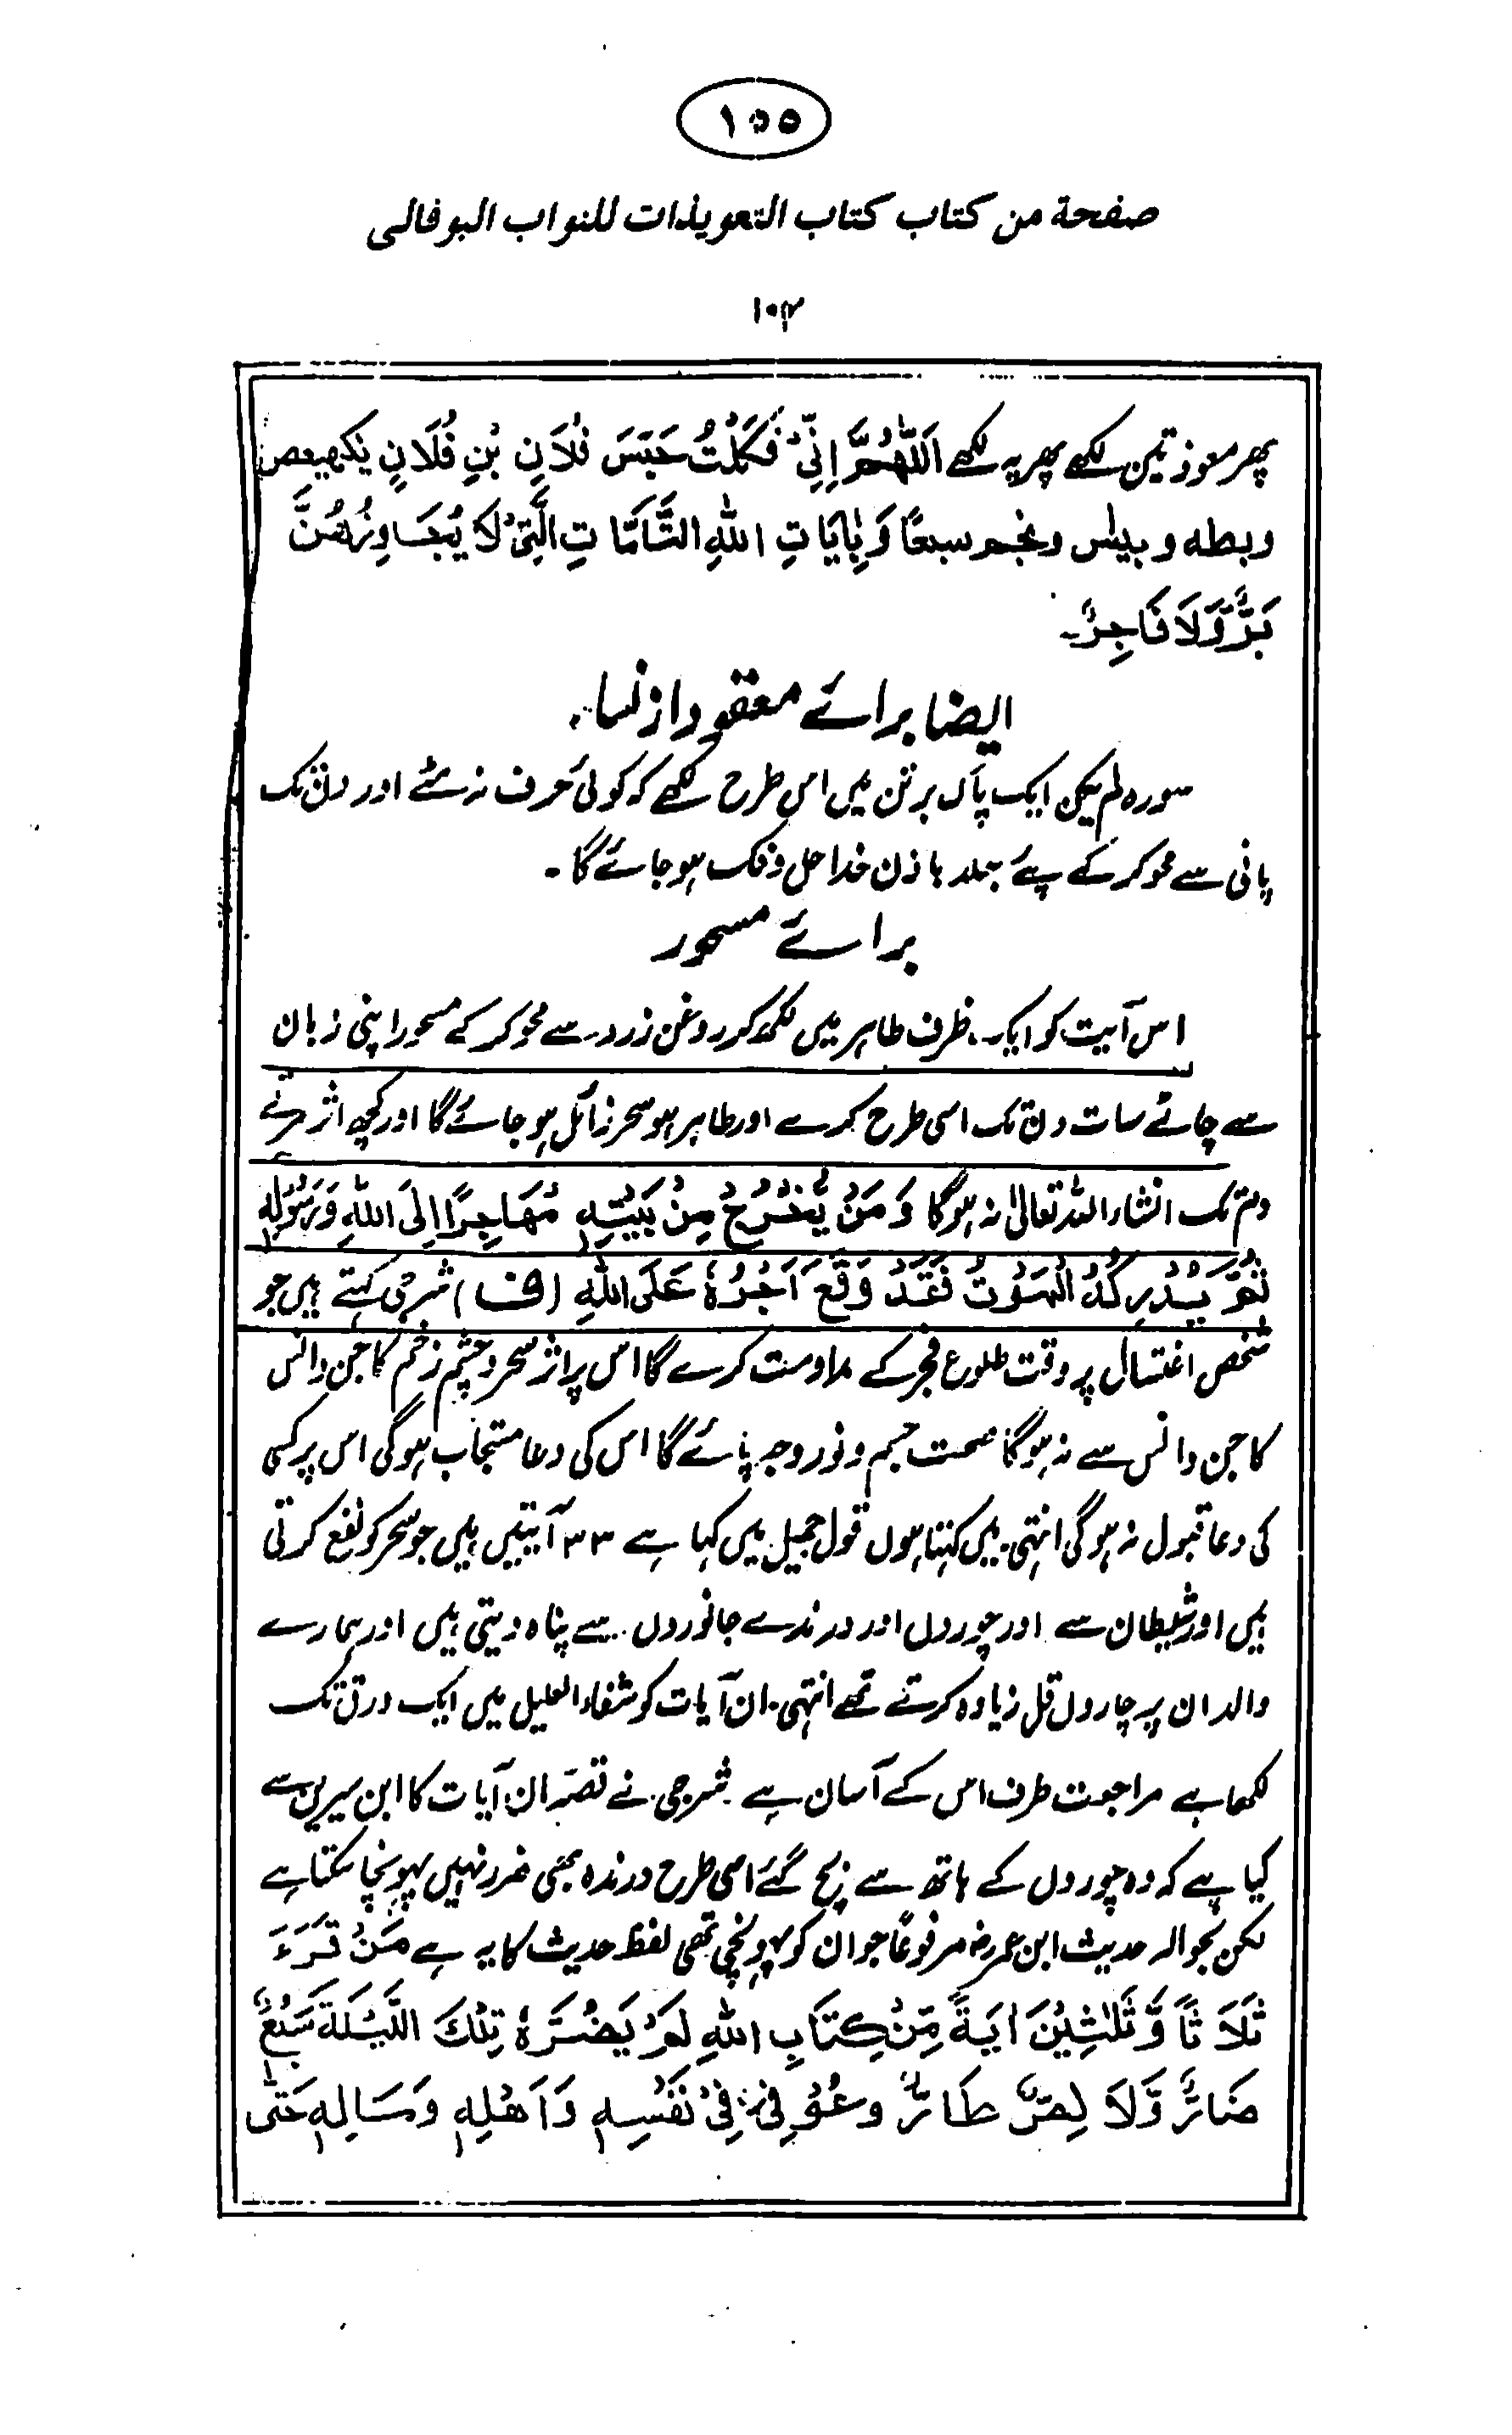 ١٥٥
صفحة من كتاب كتاب التعويذات للنواب البوفالى
١٠٢
پھر معوذتین لکھے پھر یہ لکھے اَللّٰهُمَّ اِنِّیْ فَكَلْتُ حَبَسَ فُلَانِ بْنِ فُلَانٍ بكهيعص
وبطه وبيلس ونجم سبعًا وَبِاٰيَاتِ اللهِ التَّامَّاتِ الَّتِیْ لَا يُجَاوِزُهُنَّ
بَرٌّ وَّلَا فَاجِرٌ۔
ایضا برائے معقود از نساء
سورہ لم یکن ایک پاک برتن میں اس طرح لکھے کہ کوئی حرف نہ مٹے اور دن تک
پانی سے محو کر کے پئے جلد باذن خدا حل و فک ہو جائے گا ۔
برائے مسحور
اس آیت کو ایک ظرف طاہر میں لکھ کر روغن زرد سے محو کر کے مسحور اپنی زبان
سے چاٹے سات دن تک اسی طرح کرے اور طاہر ہو سحر زائل ہو جائے گا اور کچھ اثر مرتے
دم تک انشاء اللہ تعالیٰ نہ ہوگا وَمَنْ يَّخْرُجْ مِنْ بَيْتِهٖ مُهَاجِرًا اِلَى اللهِ وَرَسُوْلِهٖ
ثُمَّ يُدْرِكْهُ الْمَوْتُ فَقَدْ وَقَعَ اَجْرُهٗ عَلَى اللهِ (ف) شرجی کہتے ہیں جو
شخص اغتسال پر وقت طلوع فجر کے مداومت کرے گا اس پر اثر سحر و چشم زخم کا جن وانس
کا جن وانس سے نہ ہوگا صحت جسم و نور وجہ پائے گا اس کی دعا مستجاب ہوگی اس پر کسی
کی دعا قبول نہ ہوگی انتہی. میں کہتا ہوں قول جمیل میں کہا ہے ۳۳ آیتیں ہیں جو سحر کو نفع کرتی
ہیں اور شیطان سے اور چوروں اور درندے جانوروں سے پناہ دیتی ہیں اور ہمارے
والد ان پر چاروں قل زیادہ کرتے تھے انتہی. ان آیات کو شفاء العلیل میں ایک ورق تک
لکھا ہے مراجعت طرف اس کے آسان ہے شرجی نے قصہ ان آیات کا ابن سیرین سے
کیا ہے کہ وہ چوروں کے ہاتھ سے بچ گئے اسی طرح درندہ بھی ضرر نہیں پہونچا سکتا ہے
لکن بحوالہ حدیث ابن عمر رض مرفوعًا جو ان کو پہونچی تھی لفظ حدیث کا یہ ہے مَنْ قَرَءَ
ثَلَاثًا وَّثَلٰثِيْنَ اٰيَةً مِّنْ كِتَابِ اللهِ لَمْ يَضُرَّهٗ تِلْكَ اللَّيْلَةَ سَبُعٌ
ضَارٌّ وَّلَا لِصٌّ طَارٌّ وعُوْفِیَ فِیْ نَفْسِهٖ وَاَهْلِهٖ وَمَالِهٖ حَتّٰى